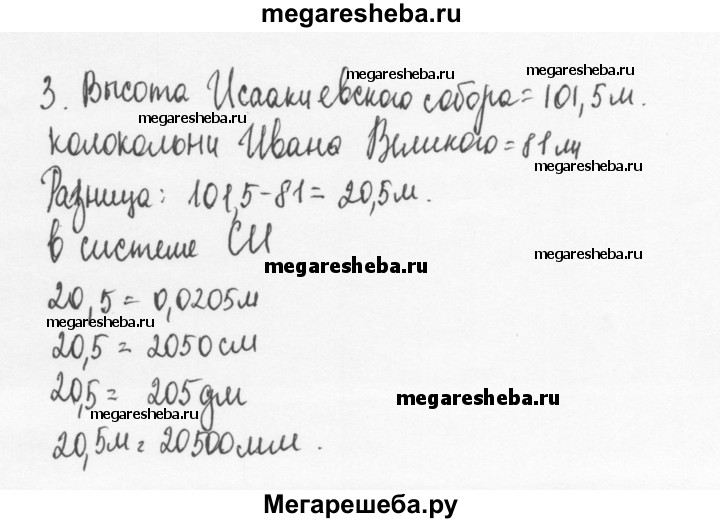 megaresheba.ru
3. Высота Исаакиевского собора = 101,5 м.
megaresheba.ru
megaresheba.ru
megaresheba.ru
колокольни Ивана Великого = 81 м
megaresheba.ru
megaresheba.ru
Разница: 101,5 - 81 = 20,5 м.
megaresheba.ru
в системе СИ
megaresheba.ru
megaresheba.ru
20,5 = 0,0205 м
megaresheba.ru
20,5 = 2050 см
20,5 = 205 дм
megaresheba.ru
megaresheba.ru
20,5 м = 20500 мм.
Мегарешеба.ру